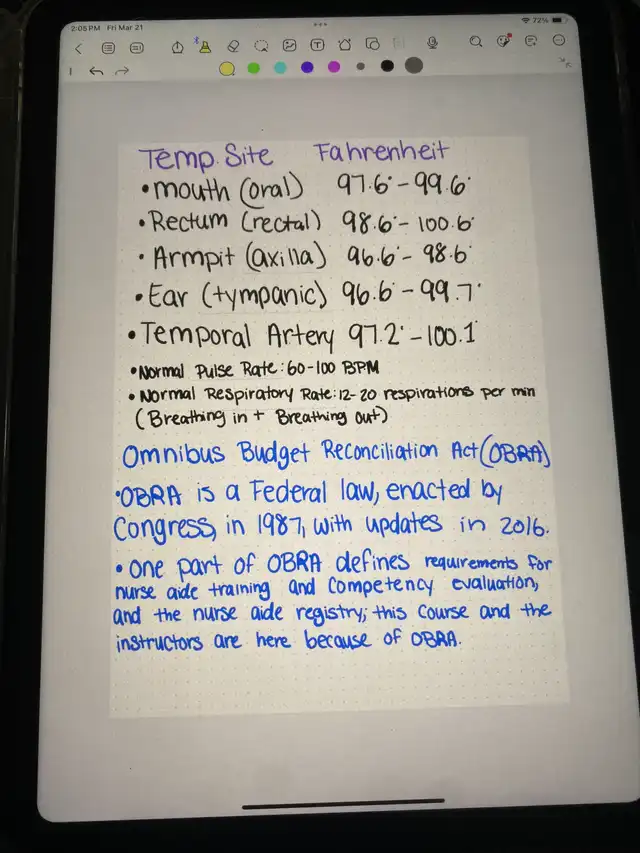 2:05 PM Fri Mar 21
72%
Temp. Site Fahrenheit
• mouth (oral) 97.6° - 99.6°
• Rectum (rectal) 98.6° - 100.6°
• Armpit (axilla) 96.6° - 98.6°
• Ear (tympanic) 96.6° - 99.7°
• Temporal Artery 97.2° - 100.1°
• Normal Pulse Rate: 60-100 BPM
• Normal Respiratory Rate: 12-20 respirations per min
(Breathing in + Breathing out)
Omnibus Budget Reconciliation Act (OBRA)
• OBRA is a Federal law, enacted by
Congress, in 1987, with updates in 2016.
• One part of OBRA defines requirements for
nurse aide training and competency evaluation,
and the nurse aide registry; this course and the
instructors are here because of OBRA.